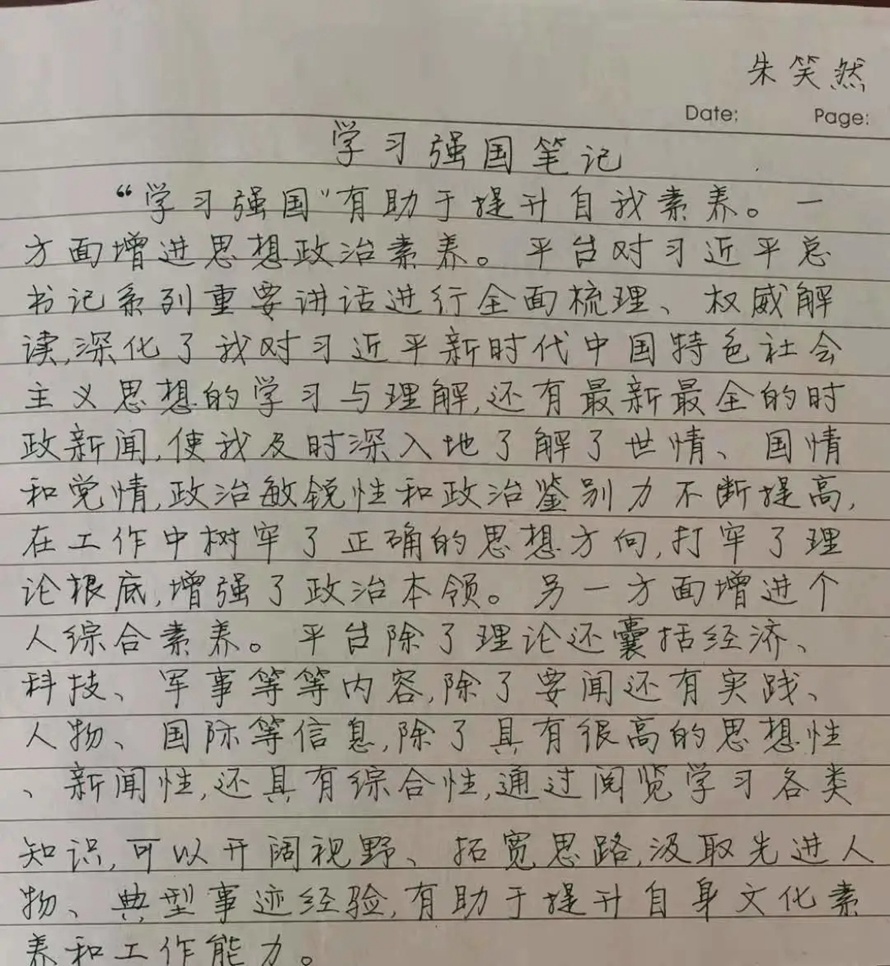 朱笑然
Date: Page:
学习强国笔记
“学习强国”有助于提升自我素养。一
方面增进思想政治素养。平台对习近平总
书记系列重要讲话进行全面梳理、权威解
读,深化了我对习近平新时代中国特色社会
主义思想的学习与理解,还有最新最全的时
政新闻,使我及时深入地了解了世情、国情
和党情,政治敏锐性和政治鉴别力不断提高,
在工作中树牢了正确的思想方向,打牢了理
论根底,增强了政治本领。另一方面增进个
人综合素养。平台除了理论还囊括经济、
科技、军事等等内容,除了要闻还有实践、
人物、国际等信息,除了具有很高的思想性
、新闻性,还具有综合性,通过阅览学习各类
知识,可以开阔视野、拓宽思路,汲取先进人
物、典型事迹经验,有助于提升自身文化素
养和工作能力。